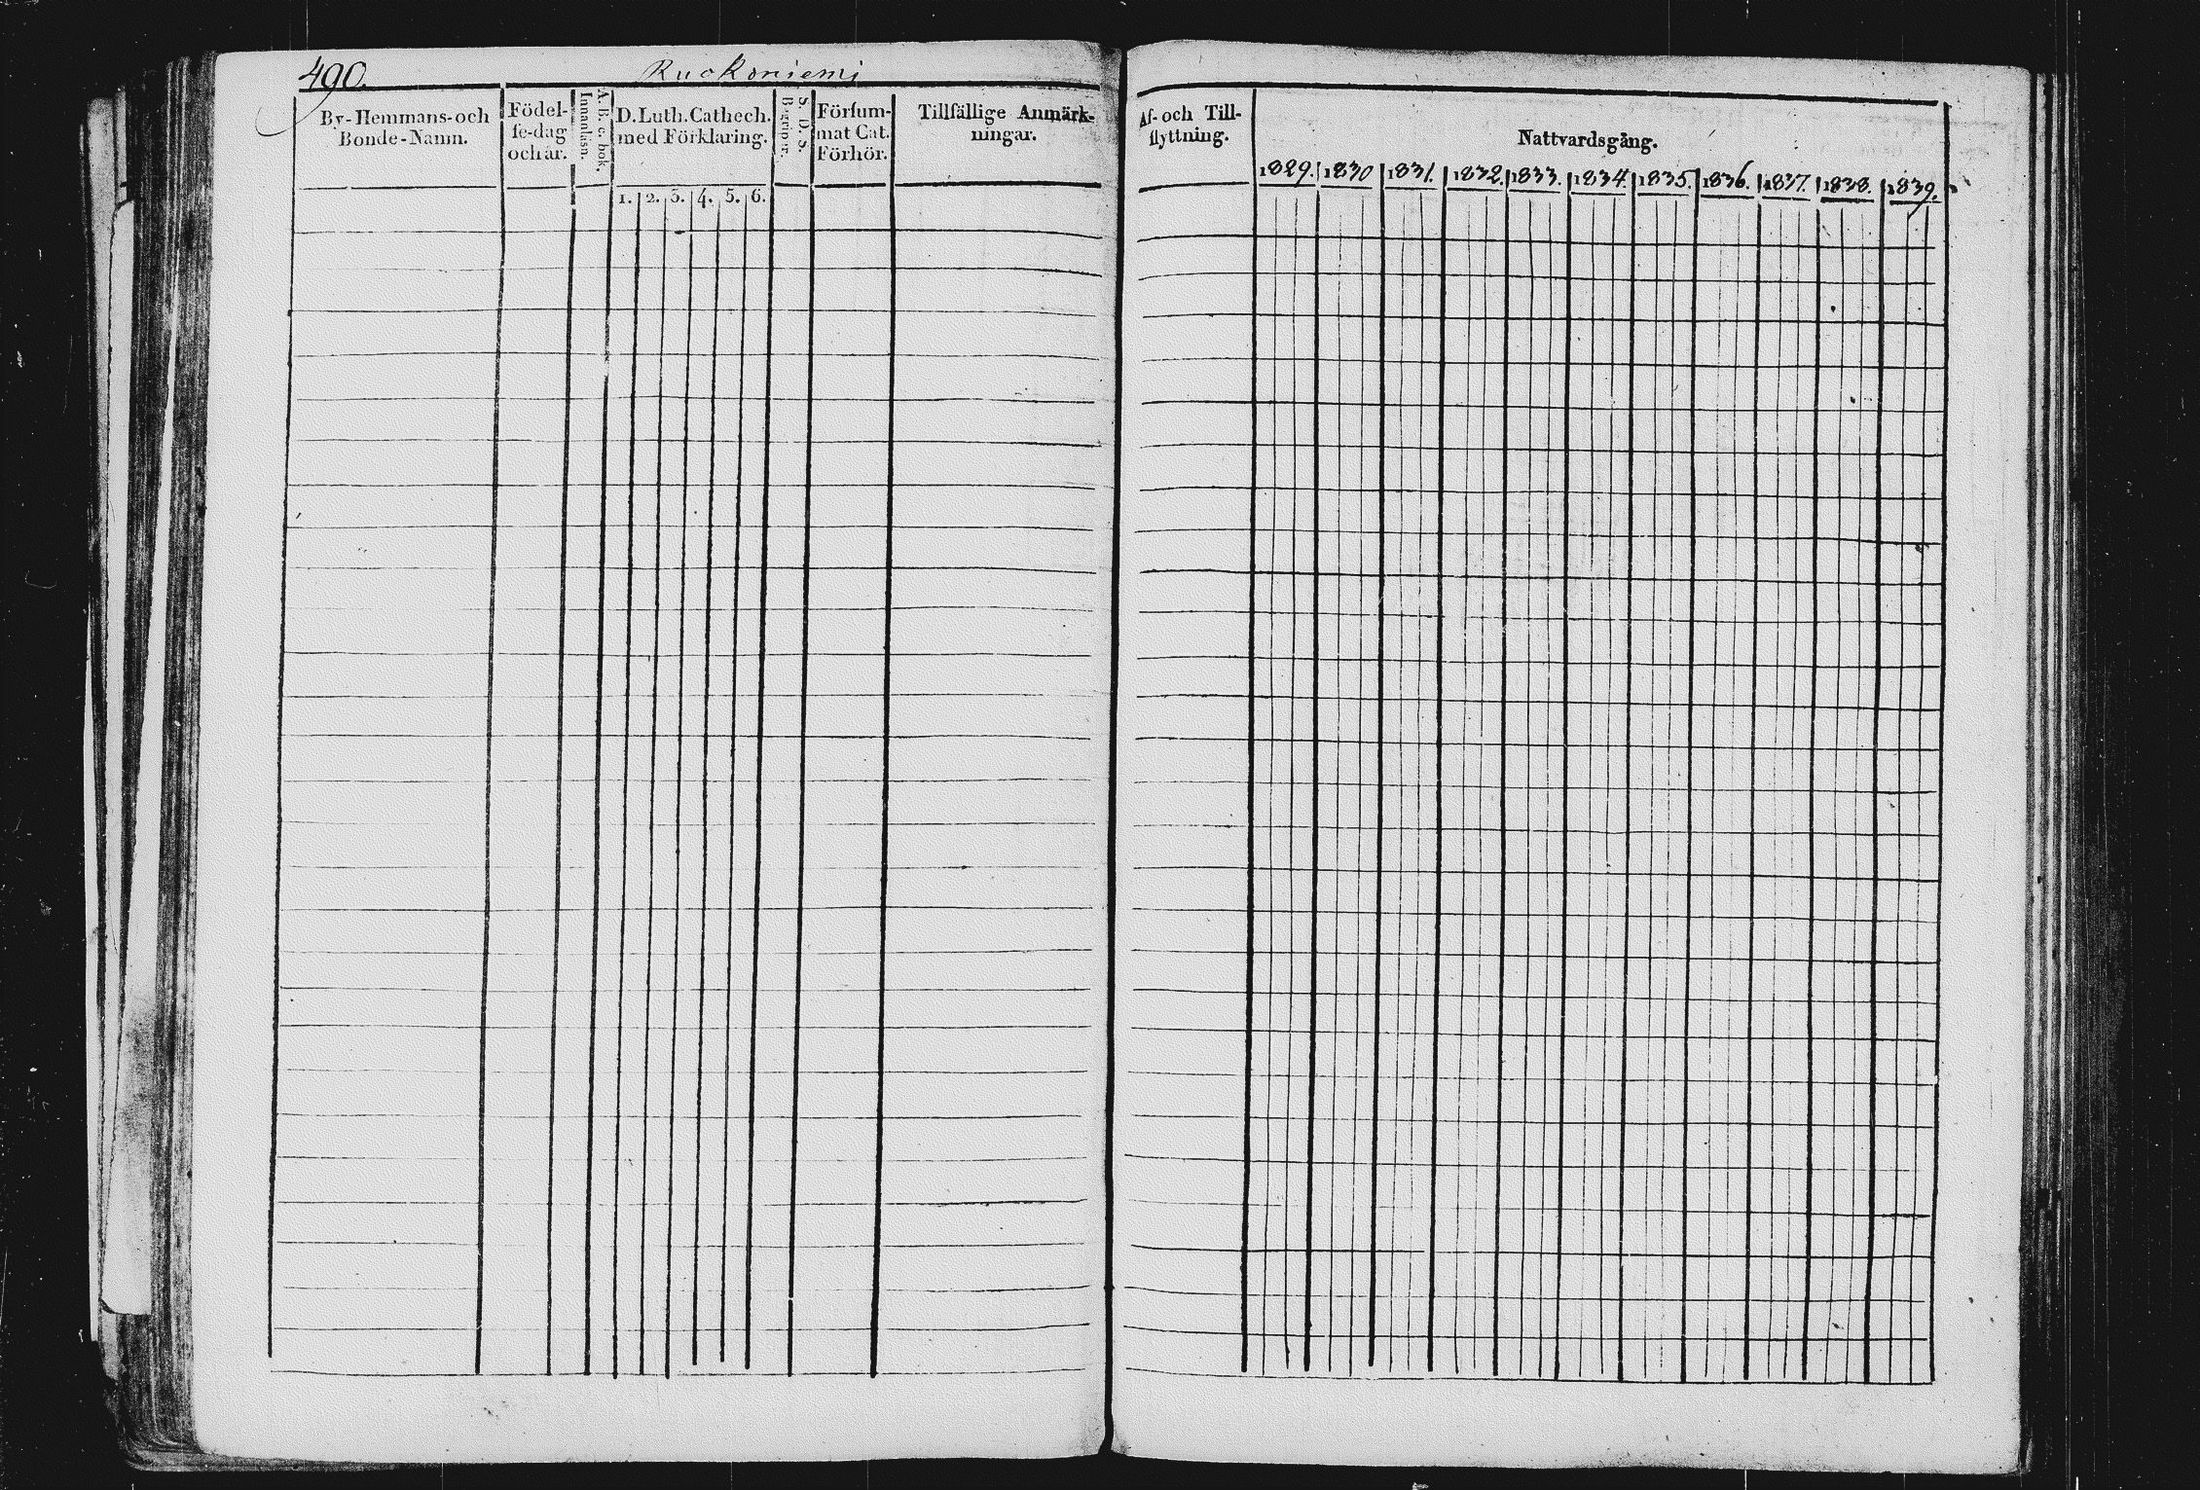 490.
Ruokoniemi
By-Hemmans-och
Bonde-Namn.
Födel-
se-dag
och år.
A. B. c. bok.
Innanläsn.
D. Luth. Cathech.
med Förklaring.
1. 2. 3. 4. 5. 6.
S. D. S.
Begripur.
Försum-
mat Cat.
Förhör.
Tillfällige Anmärk-
ningar.
Af- och Till-
flyttning.
Nattvardsgång.
1829. 1830 1831. 1832. 1833. 1834. 1835. 1836. 1837. 1838. 1839.